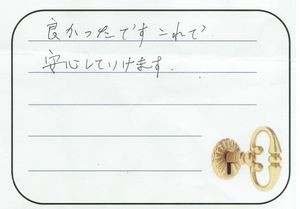 良かったです これで
安心していけます.